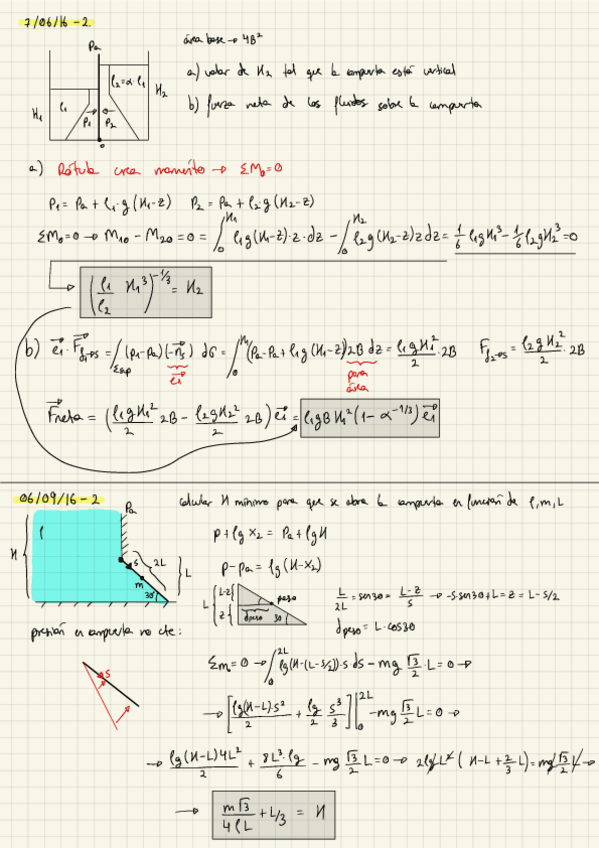 7/06/16-2.
Pa
H₁ ρ₁ P₁ P₂ ρ₂=α·ρ₁ H₂
o
área base → 4B²
a) valor de H₂ tal que la compuerta está vertical
b) fuerza neta de los fluidos sobre la compuerta
a) Rótula crea momento → ΣM₀=0
P₁ = Pa + ρ₁·g(H₁-z) P₂ = Pa + ρ₂·g(H₂-z)
ΣM₀=0 → M₁₀ - M₂₀ = 0 = ∫₀^H₁ ρ₁g(H₁-z)·z·dz - ∫₀^H₂ ρ₂g(H₂-z)z dz = 1/6 ρ₁gH₁³ - 1/6 ρ₂gH₂³ = 0
(ρ₁/ρ₂ H₁³)^-1/3 = H₂
b) e₁·F_f₁→s = ∫_Σcup (p₁-pa)(-n₁) dσ = ∫₀^H₁ (Pa-Pa+ρ₁g(H₁-z))2B dz = ρ₁gH₁²/2 · 2B F_f₂→s = ρ₂gH₂²/2 · 2B
e₁
para área
Fneta = (ρ₁gH₁²/2 2B - ρ₂gH₂²/2 2B) e₁ = ρ₁gBH₁²(1-α^-1/3) e₁
06/09/16-2
calcular H mínimo para que se abra la compuerta en función de ρ,m,L
Pa
H ρ s 2L m 30° L
p+ρg x₂ = Pa+ρgH
p-pa = ρg(H-x₂)
L L-z z dpeso peso 30
L/2L = sen30 = L-z/s → -s·sen30+L=z = L-s/2
dpeso = L·cos30
presión en compuerta no cte:
s
Σm₀=0 → ∫₀^2L ρg(H-(L-s/2))·s ds - mg √3/2 ·L=0 →
→ [ρg(H-L)·s²/2 + ρg/2 s³/3]|₀^2L - mg √3/2 L=0 →
→ ρg(H-L)4L²/2 + 8L³·ρg/6 - mg √3/2 L=0 → 2ρgL²(H-L+2/3 L)=mg√3/2 L →
→ m√3/4ρL + L/3 = H